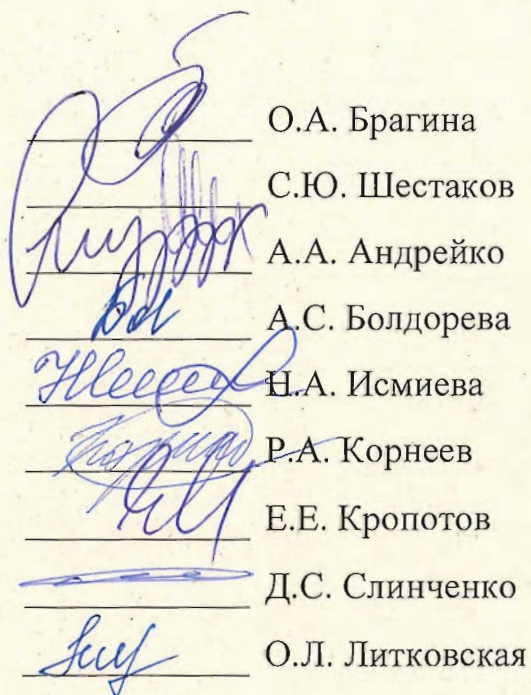 О.А. Брагина
С.Ю. Шестаков
А.А. Андрейко
А.С. Болдорева
Н.А. Исмиева
Р.А. Корнеев
Е.Е. Кропотов
Д.С. Слинченко
О.Л. Литковская